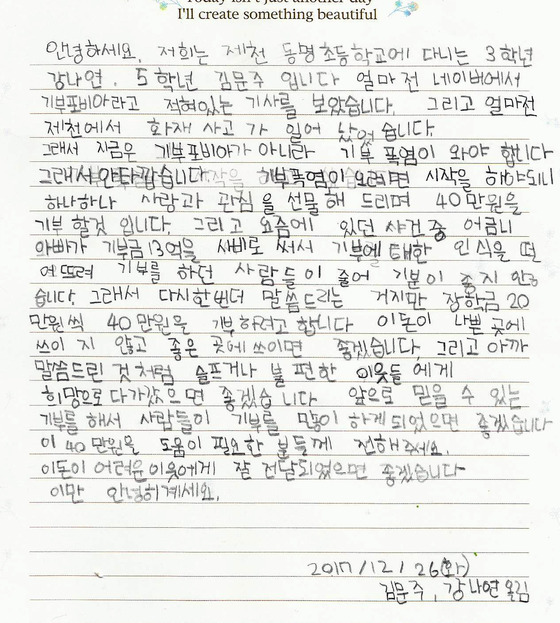 Today isn't just another day
I'll create something beautiful
안녕하세요. 저희는 제천 동명초등학교에 다니는 3학년
강나연, 5학년 김문주 입니다 얼마전 네이버에서
기부포비아라고 적혀있는 기사를 보았습니다. 그리고 얼마전
제천에서 화재 사고 가 일어 났었 습니다.
그래서 지금은 기부포비아가 아니라 기부 폭염이 와야 합니다
그래서 안타깝습니다 기부폭염이 오려면 시작을 해야되니
하나하나 사랑과 관심 을 선물 해 드리며 40만원을
기부 할것 입니다. 그리고 요즘에 있던 사건중 어금니
아빠가 기부금 13억을 사비로 써서 기부에 대한 인식을 떨
어뜨려 기부를 하던 사람들이 줄어 기분이 좋지 않
습니다. 그래서 다시한번더 말씀드리는 거지만 장학금 20
만원씩 40만원을 기부하려고 합니다 이돈이 나쁜 곳에
쓰이 지 않고 좋은 곳에 쓰이면 좋겠습니다. 그리고 아까
말씀드린 것처럼 슬프거나 불 편한 이웃들 에게
희망으로 다가갔으면 좋겠습니다 앞으로 믿을 수 있는
기부를 해서 사람들이 기부를 많이 하게되었으면 좋겠습니다
이 40만원을 도움이 필요한 분들께 전해주세요.
이돈이 어려운이웃에게 잘 전달되었으면 좋겠습니다
이만 안녕히계세요.
2017/12/26(화)
김문주, 강나연올림